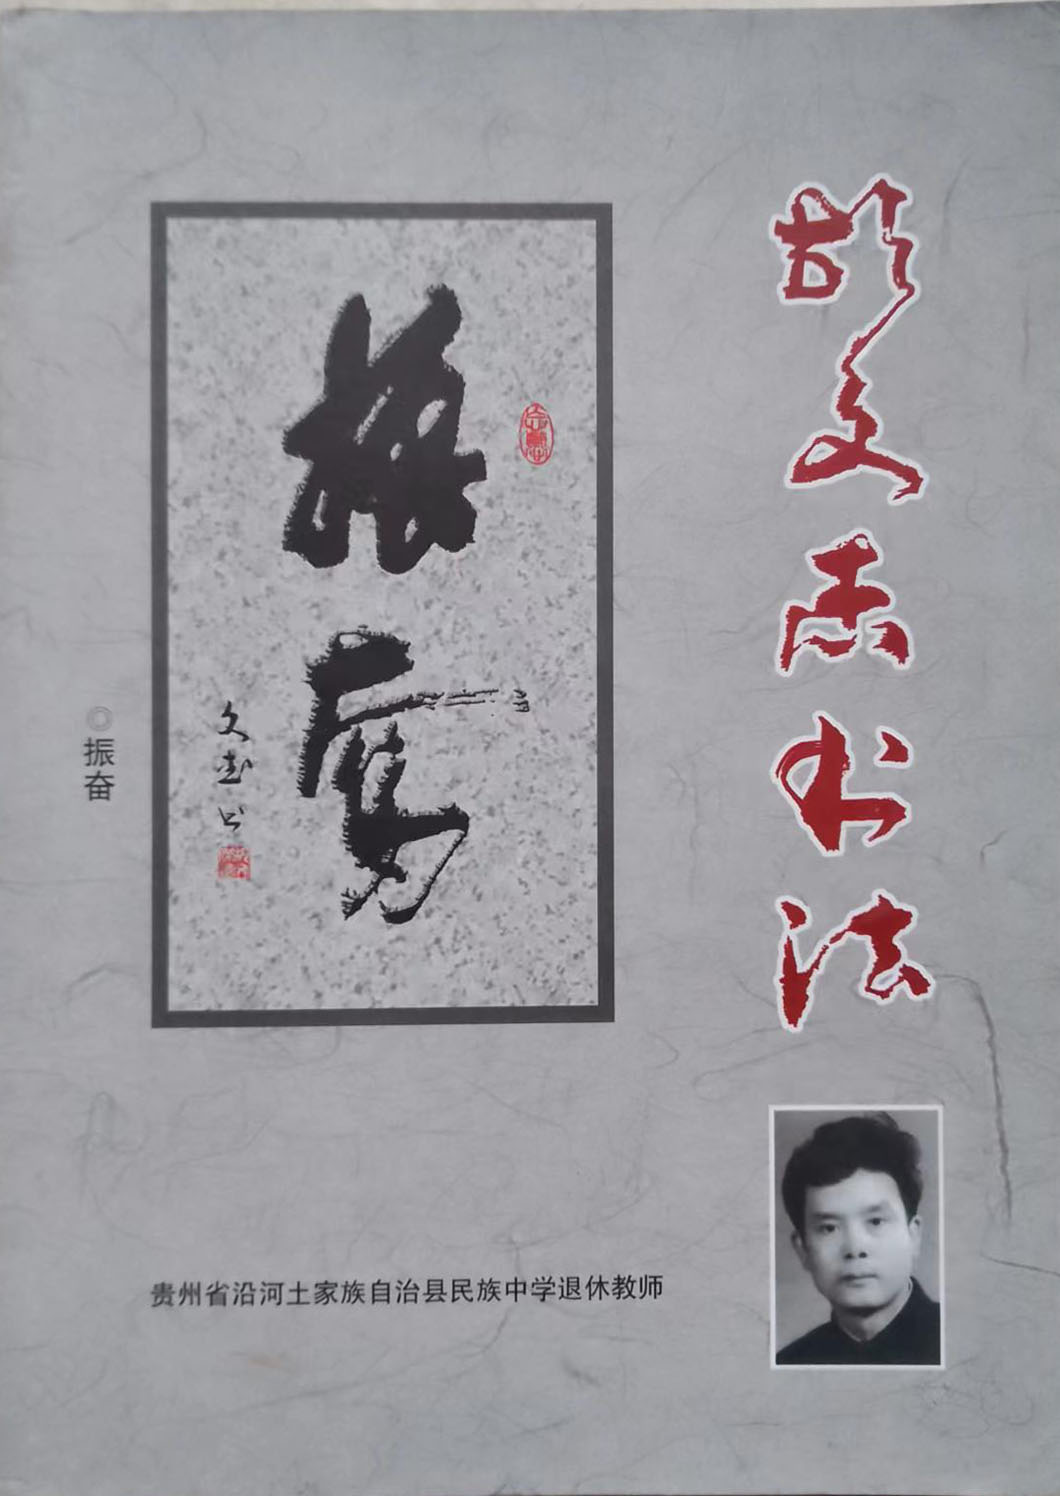 胡文志书法
振奋
文志书
◎振奋
贵州省沿河土家族自治县民族中学退休教师